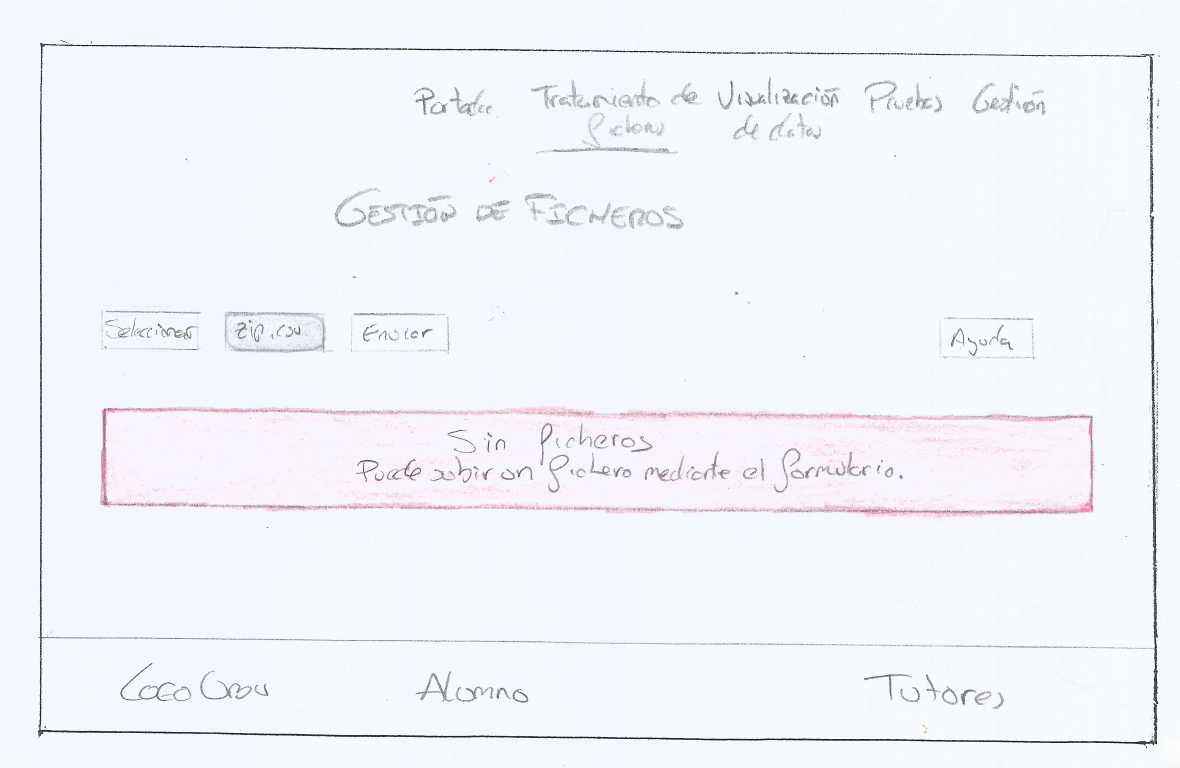 Portada Tratamiento de Visualización Pruebas Gestión
ficheros de datos
GESTIÓN DE FICHEROS
Seleccionar zip, csv Enviar Ayuda
Sin ficheros
Puede subir un fichero mediante el formulario.
Logo Univ Alumno Tutores